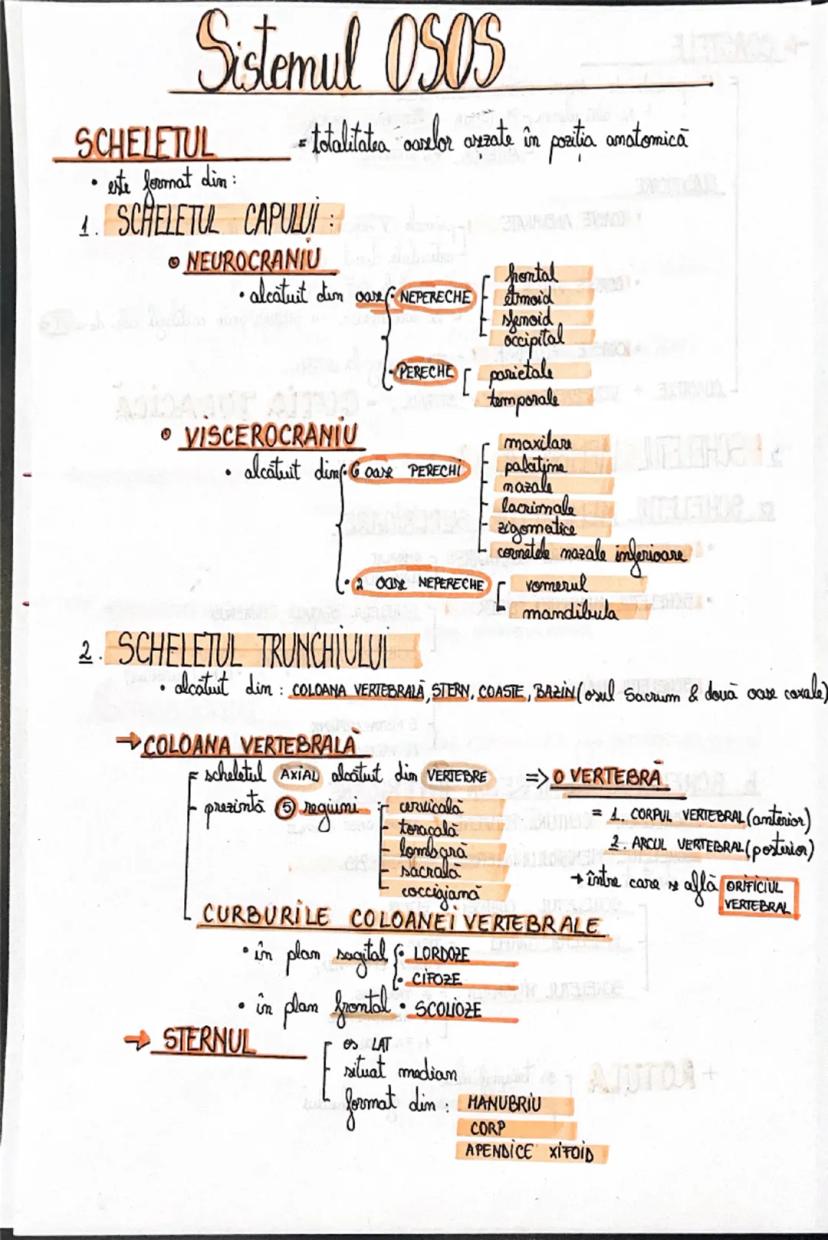 Sistemul OSOS
SCHELETUL = totalitatea oaselor așezate în poziția anatomică
• este format din:
1. SCHELETUL CAPULUI:
• NEUROCRANIU
• alcătuit din oase • NEPERECHE
frontal
etmoid
sfenoid
occipital
• PERECHE
parietale
temporale
• VISCEROCRANIU
• alcătuit din • 6 oase PERECHI
maxilare
palatine
nazale
lacrimale
zigomatice
cornetele nazale inferioare
• 2 oase NEPERECHE
vomerul
mandibula
2. SCHELETUL TRUNCHIULUI
• alcătuit din: COLOANA VERTEBRALĂ, STERN, COASTE, BAZIN (osul sacrum & două oase coxale)
→ COLOANA VERTEBRALĂ
= scheletul AXIAL alcătuit din VERTEBRE
- prezintă 5 regiuni
cervicală
toracală
lombară
sacrală
coccigiană
=> O VERTEBRĂ
= 1. CORPUL VERTEBRAL (anterior)
2. ARCUL VERTEBRAL (posterior)
→ între care se află ORIFICIUL VERTEBRAL
CURBURILE COLOANEI VERTEBRALE
• în plan sagital • LORDOZE
• CIFOZE
• în plan frontal • SCOLIOZE
→ STERNUL
os LAT
situat median
format din: MANUBRIU
CORP
APENDICE XIFOID